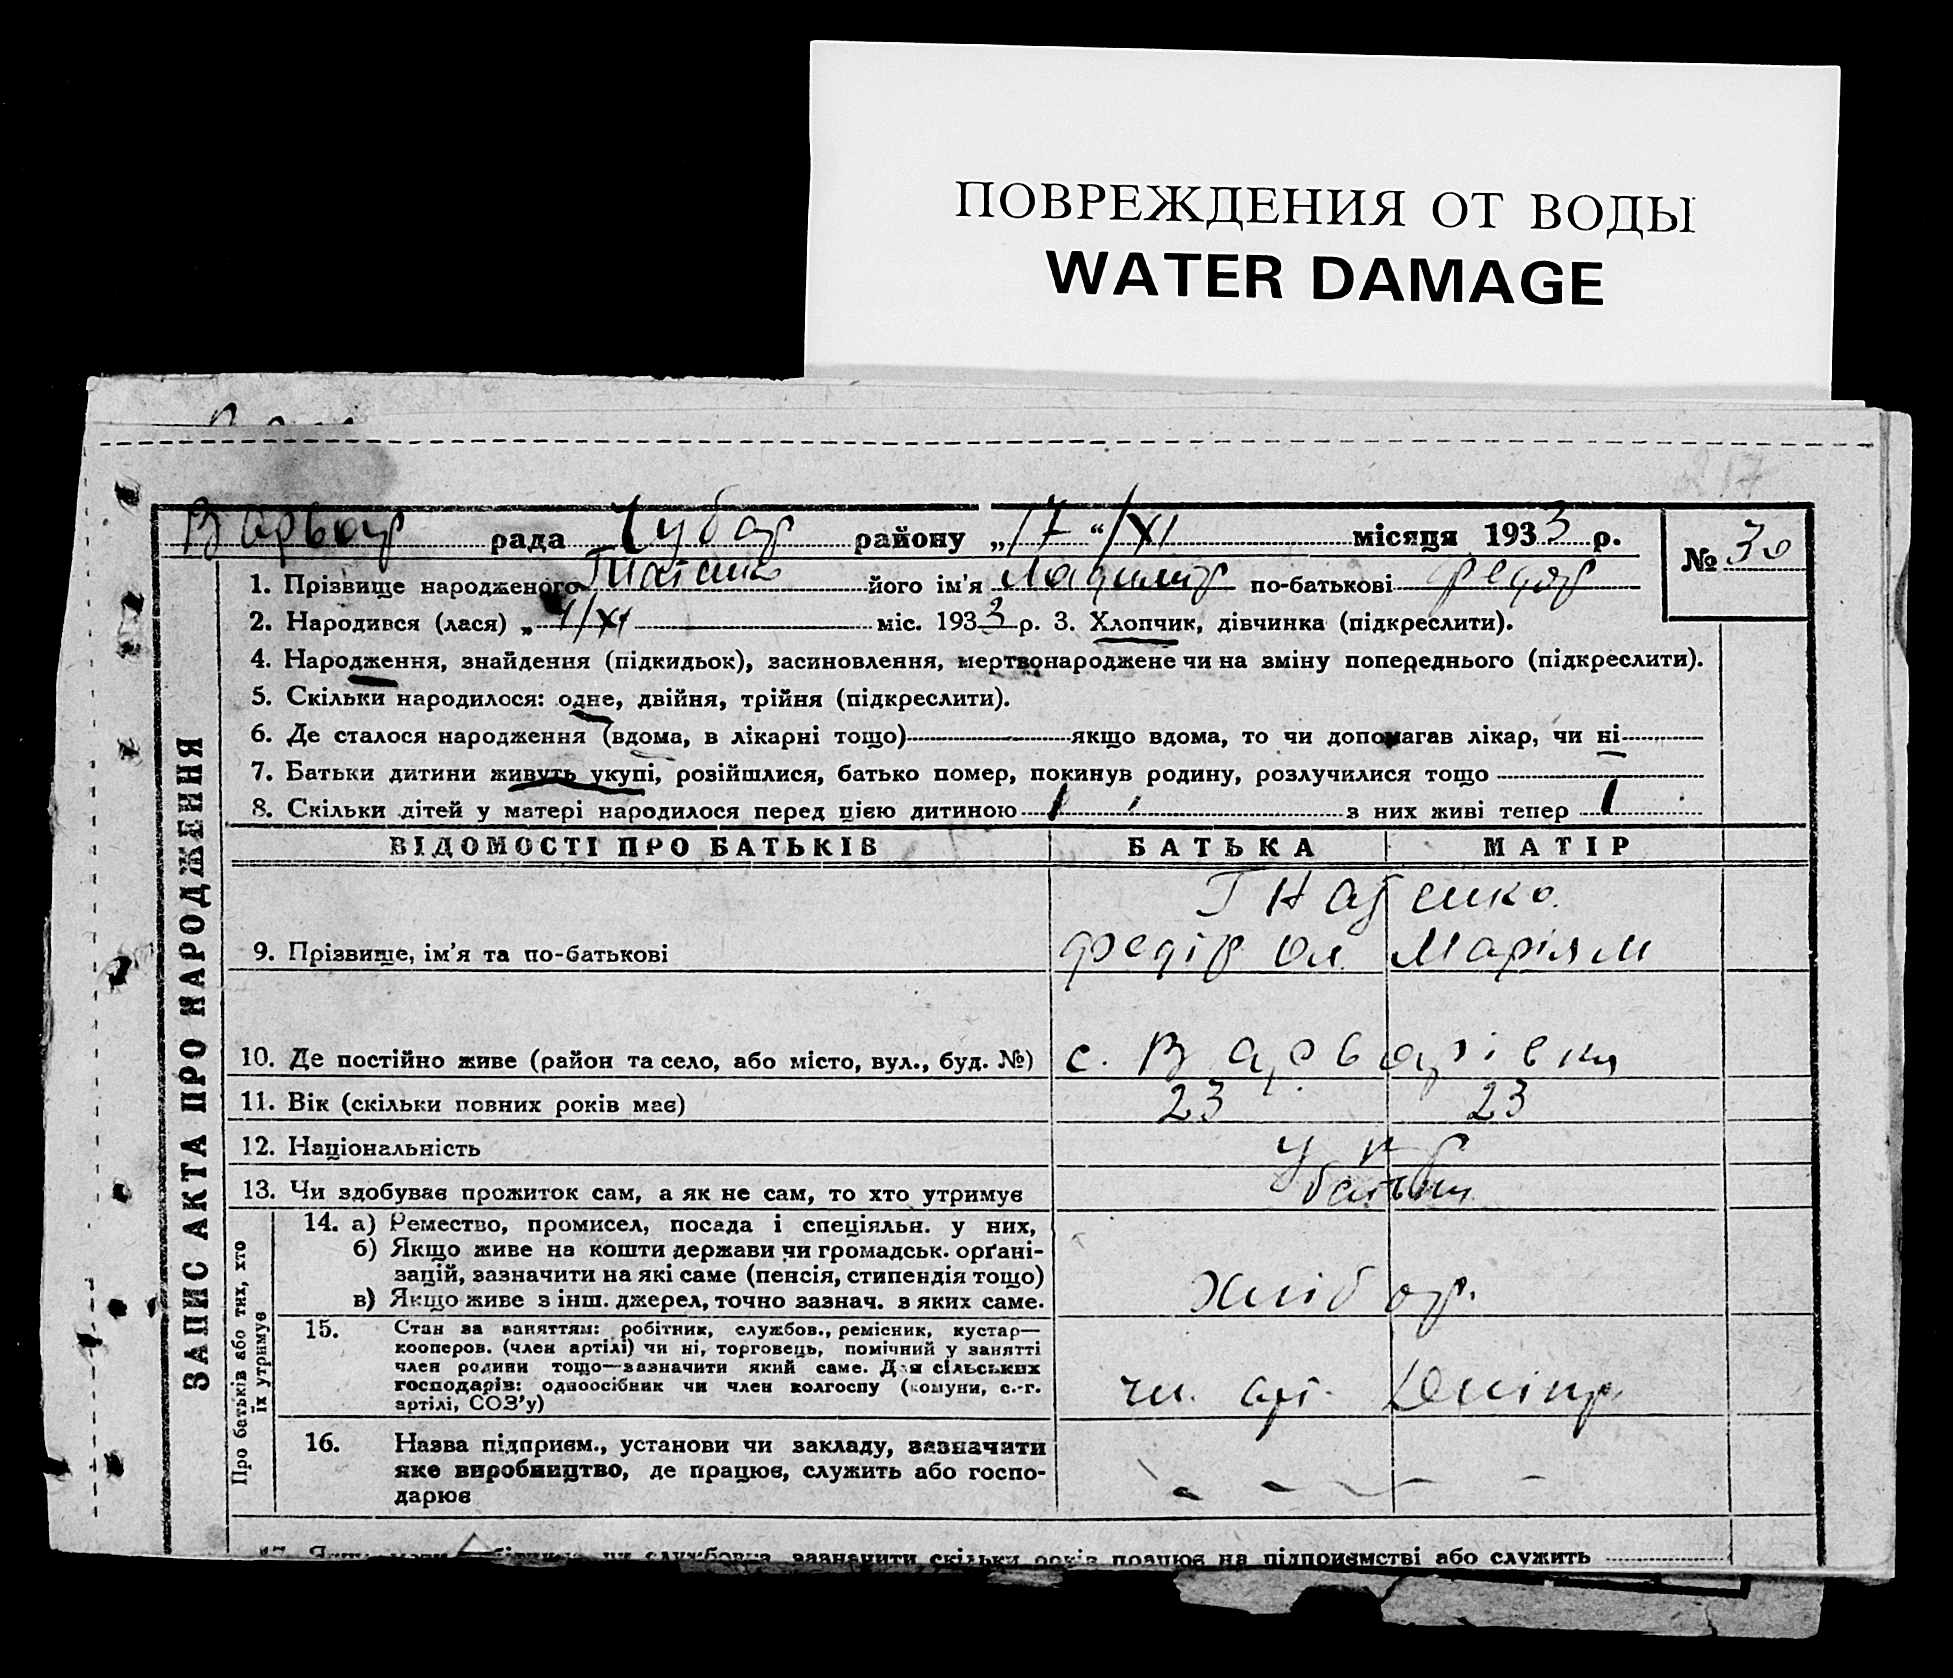 ПОВРЕЖДЕНИЯ ОТ ВОДЫ
WATER DAMAGE
217
Варвар рада Чубар району „17“/XI місяця 1933 р. № 30
1. Прізвище народженого Гнатенко його ім'я по-батькові Федор
2. Народився (лася) „ /XI міс. 1933 р. 3. Хлопчик, дівчинка (підкреслити).
4. Народження, знайдення (підкидьок), засиновлення, мертвонароджене чи на зміну попереднього (підкреслити).
5. Скільки народилося: одне, двійня, трійня (підкреслити).
6. Де сталося народження (вдома, в лікарні тощо) якщо вдома, то чи допомагав лікар, чи ні
7. Батьки дитини живуть укупі, розійшлися, батько помер, покинув родину, розлучилися тощо
8. Скільки дітей у матері народилося перед цією дитиною 1 з них живі тепер 1
ЗАПИС АКТА ПРО НАРОДЖЕННЯ
ВІДОМОСТІ ПРО БАТЬКІВ БАТЬКА МАТІР
Гнатенко
9. Прізвище, ім'я та по-батькові Федір Ол Марія М
10. Де постійно живе (район та село, або місто, вул., буд. №) с. Варварівка
11. Вік (скільки повних років має) 23 23
12. Національність Укр
13. Чи здобуває прожиток сам, а як не сам, то хто утримує батьки
Про батьків або тих, хто
їх утримує
14. а) Ремество, промисел, посада і спеціяльн. у них,
б) Якщо живе на кошти держави чи громадськ. орґані-
зацій, зазначити на які саме (пенсія, стипендія тощо)
в) Якщо живе з інш. джерел, точно зазнач. з яких саме.
Хлібор.
15. Стан за заняттям: робітник, службов., ремісник, кустар—
кооперов. (член артілі) чи ні, торговець, помічний у занятті
член родини тощо—зазначити який саме. Для сільських
господарів: одноосібник чи член колгоспу (комуни, с.-г.
артілі, СОЗ'у)
чл. арт. Дніпр
16. Назва підприєм., установи чи закладу, зазначити
яке виробництво, де працює, служить або госпо-
дарює
17. зазначити скільки років працює на підприємстві або служить